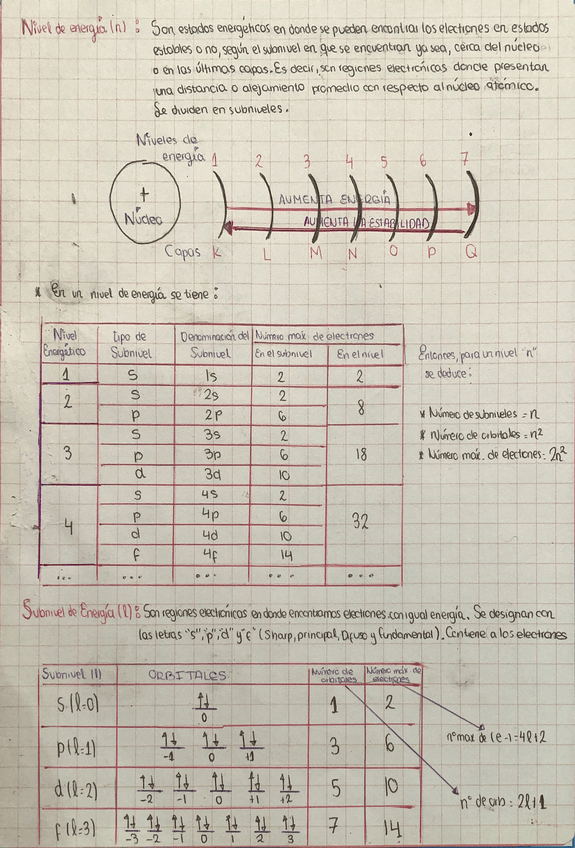 Nivel de energía (n) : Son estados energéticos en donde se pueden encontrar los electrones en estados
estables o no, según el subnivel en que se encuentran ya sea, cerca del núcleo
o en las últimas capas. Es decir, son regiones electrónicas donde presentan
una distancia o alejamiento promedio con respecto al núcleo atómico.
Se dividen en subniveles.
Niveles de
energía 1 2 3 4 5 6 7
+
Núcleo
AUMENTA ENERGÍA
AUMENTA LA ESTABILIDAD
Capas K L M N O P Q
* En un nivel de energía se tiene :
Nivel Energético | Tipo de Subnivel | Denominación del Subnivel | Número max. de electrones
En el subnivel | En el nivel
1 | s | 1s | 2 | 2
2 | s | 2s | 2 | 8
p | 2p | 6
3 | s | 3s | 2 | 18
p | 3p | 6
d | 3d | 10
4 | s | 4s | 2 | 32
p | 4p | 6
d | 4d | 10
f | 4f | 14
... | ... | ... | ... | ...
Entonces, para un nivel "n"
se deduce :
* Número de subniveles = n
* Número de orbitales = n²
* Número max. de electones = 2n²
Subnivel de Energía (l) : Son regiones electrónicas en donde encontramos electrones con igual energía. Se designan con
las letras "s", "p", "d" y "f" (Sharp, principal, Difuso y fundamental). Contiene a los electrones
Subnivel (l) | ORBITALES | Número de orbitales | Número max. de electrones
s (l=0) | ↑↓ | 1 | 2
0
p (l=1) | ↑↓ ↑↓ ↑↓ | 3 | 6
-1 0 +1
d (l=2) | ↑↓ ↑↓ ↑↓ ↑↓ ↑↓ | 5 | 10
-2 -1 0 +1 +2
f (l=3) | ↑↓ ↑↓ ↑↓ ↑↓ ↑↓ ↑↓ ↑↓ | 7 | 14
-3 -2 -1 0 1 2 3
nº max de (e-) = 4l+2
nº de orb : 2l+1